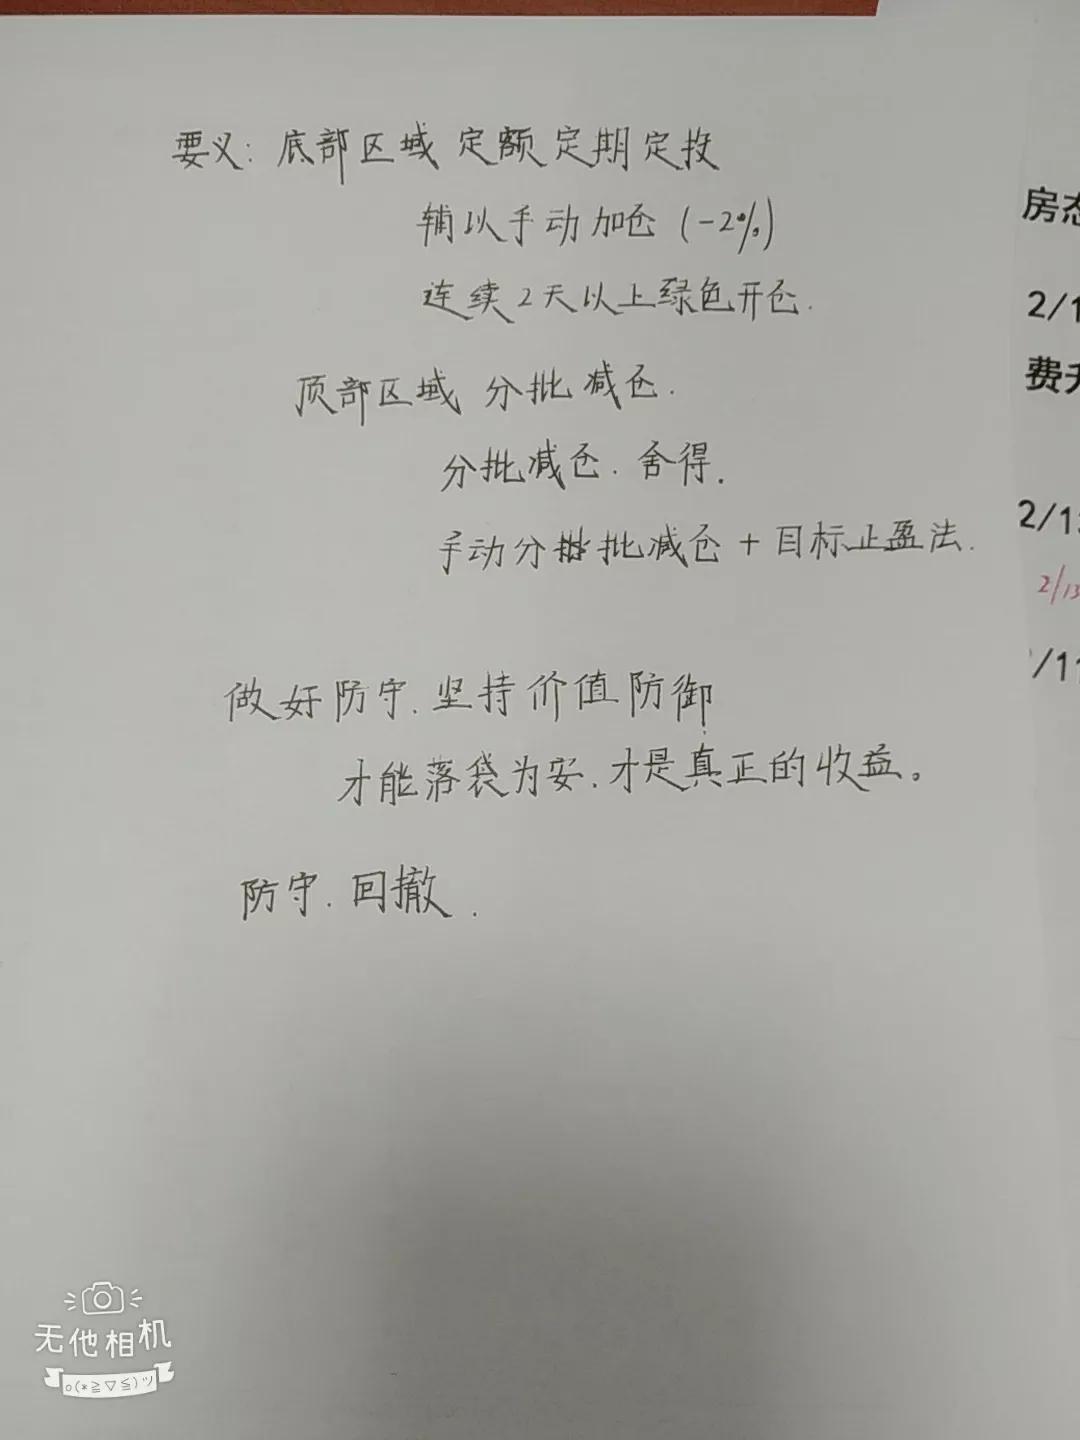 要义: 底部区域 定额定期定投
辅以手动加仓 (-2%)
连续2天以上绿色开仓.
顶部区域 分批减仓.
分批减仓. 舍得.
手动分批减仓 + 目标止盈法.
做好防守. 坚持价值防御
才能落袋为安. 才是真正的收益。
防守. 回撤.
房态
2/1
费
2/13
2/13
/11
无他相机
o(*≧▽≦)ツ